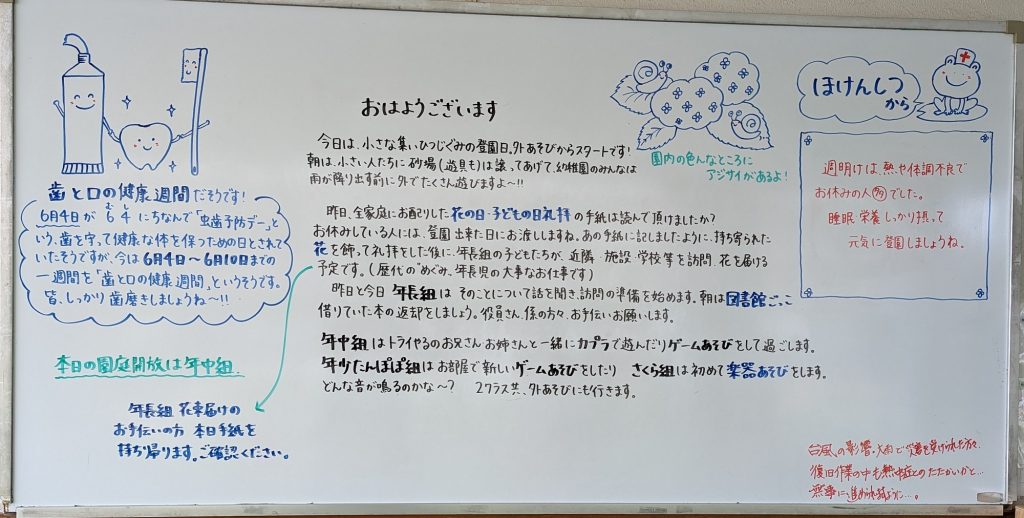 おはようございます
今日は、小さな集い、ひつじぐみの登園日、外あそびからスタートです!
朝は、小さい人たちに砂場(遊具も)は譲ってあげて、幼稚園のみんなは
雨が降り出す前に外でたくさん遊びますよ〜!!
昨日、全家庭にお配りした花の日・子どもの日礼拝の手紙は読んで頂けましたか?
お休みしている人には、登園出来た日にお渡ししますね。あの手紙に記しましたように、持ち寄られた
花を飾って礼拝をした後に、年長組の子どもたちが、近隣 施設 学校等を訪問、花を届ける
予定です。(歴代のめぐみ、年長児の大事なお仕事です)
昨日と今日 年長組は そのことについて話を聞き、訪問の準備を始めます。朝は図書館ごっこ
借りていた本の返却をしましょう。役員さん、係の方々、お手伝いお願いします。
年中組はトライやるのお兄さん お姉さんと一緒にカプラで遊んだりゲームあそびをして過ごします。
年少たんぽぽ組はお部屋で新しいゲームあそびをしたり さくら組は初めて楽器あそびをします。
どんな音が鳴るのかな〜? 2クラス共、外あそびにも行きます。
歯と口の健康週間だそうです!
6月4日が 6 4 にちなんで「虫歯予防デー」と
む し
いう、歯を守って健康な体を保つための日とされて
いたそうですが、今は6月4日〜6月10日までの
一週間を「歯と口の健康週間」というそうです。
皆、しっかり歯磨きしましょうね〜!!
本日の園庭開放は年中組
年長組 花束届けの
お手伝いの方 本日手紙を
持ち帰ります。ご確認ください。
園内の色んなところに
アジサイがあるよ!
ほけんしつ
から
週明けは、熱や体調不良で
お休みの人 多 でした。
睡眠 栄養 しっかり摂って
元気に登園しましょうね。
台風の影響、大雨で災害を受けられた方々、
復旧作業の中も熱中症とのたたかいかと…
無事に進められますように…。